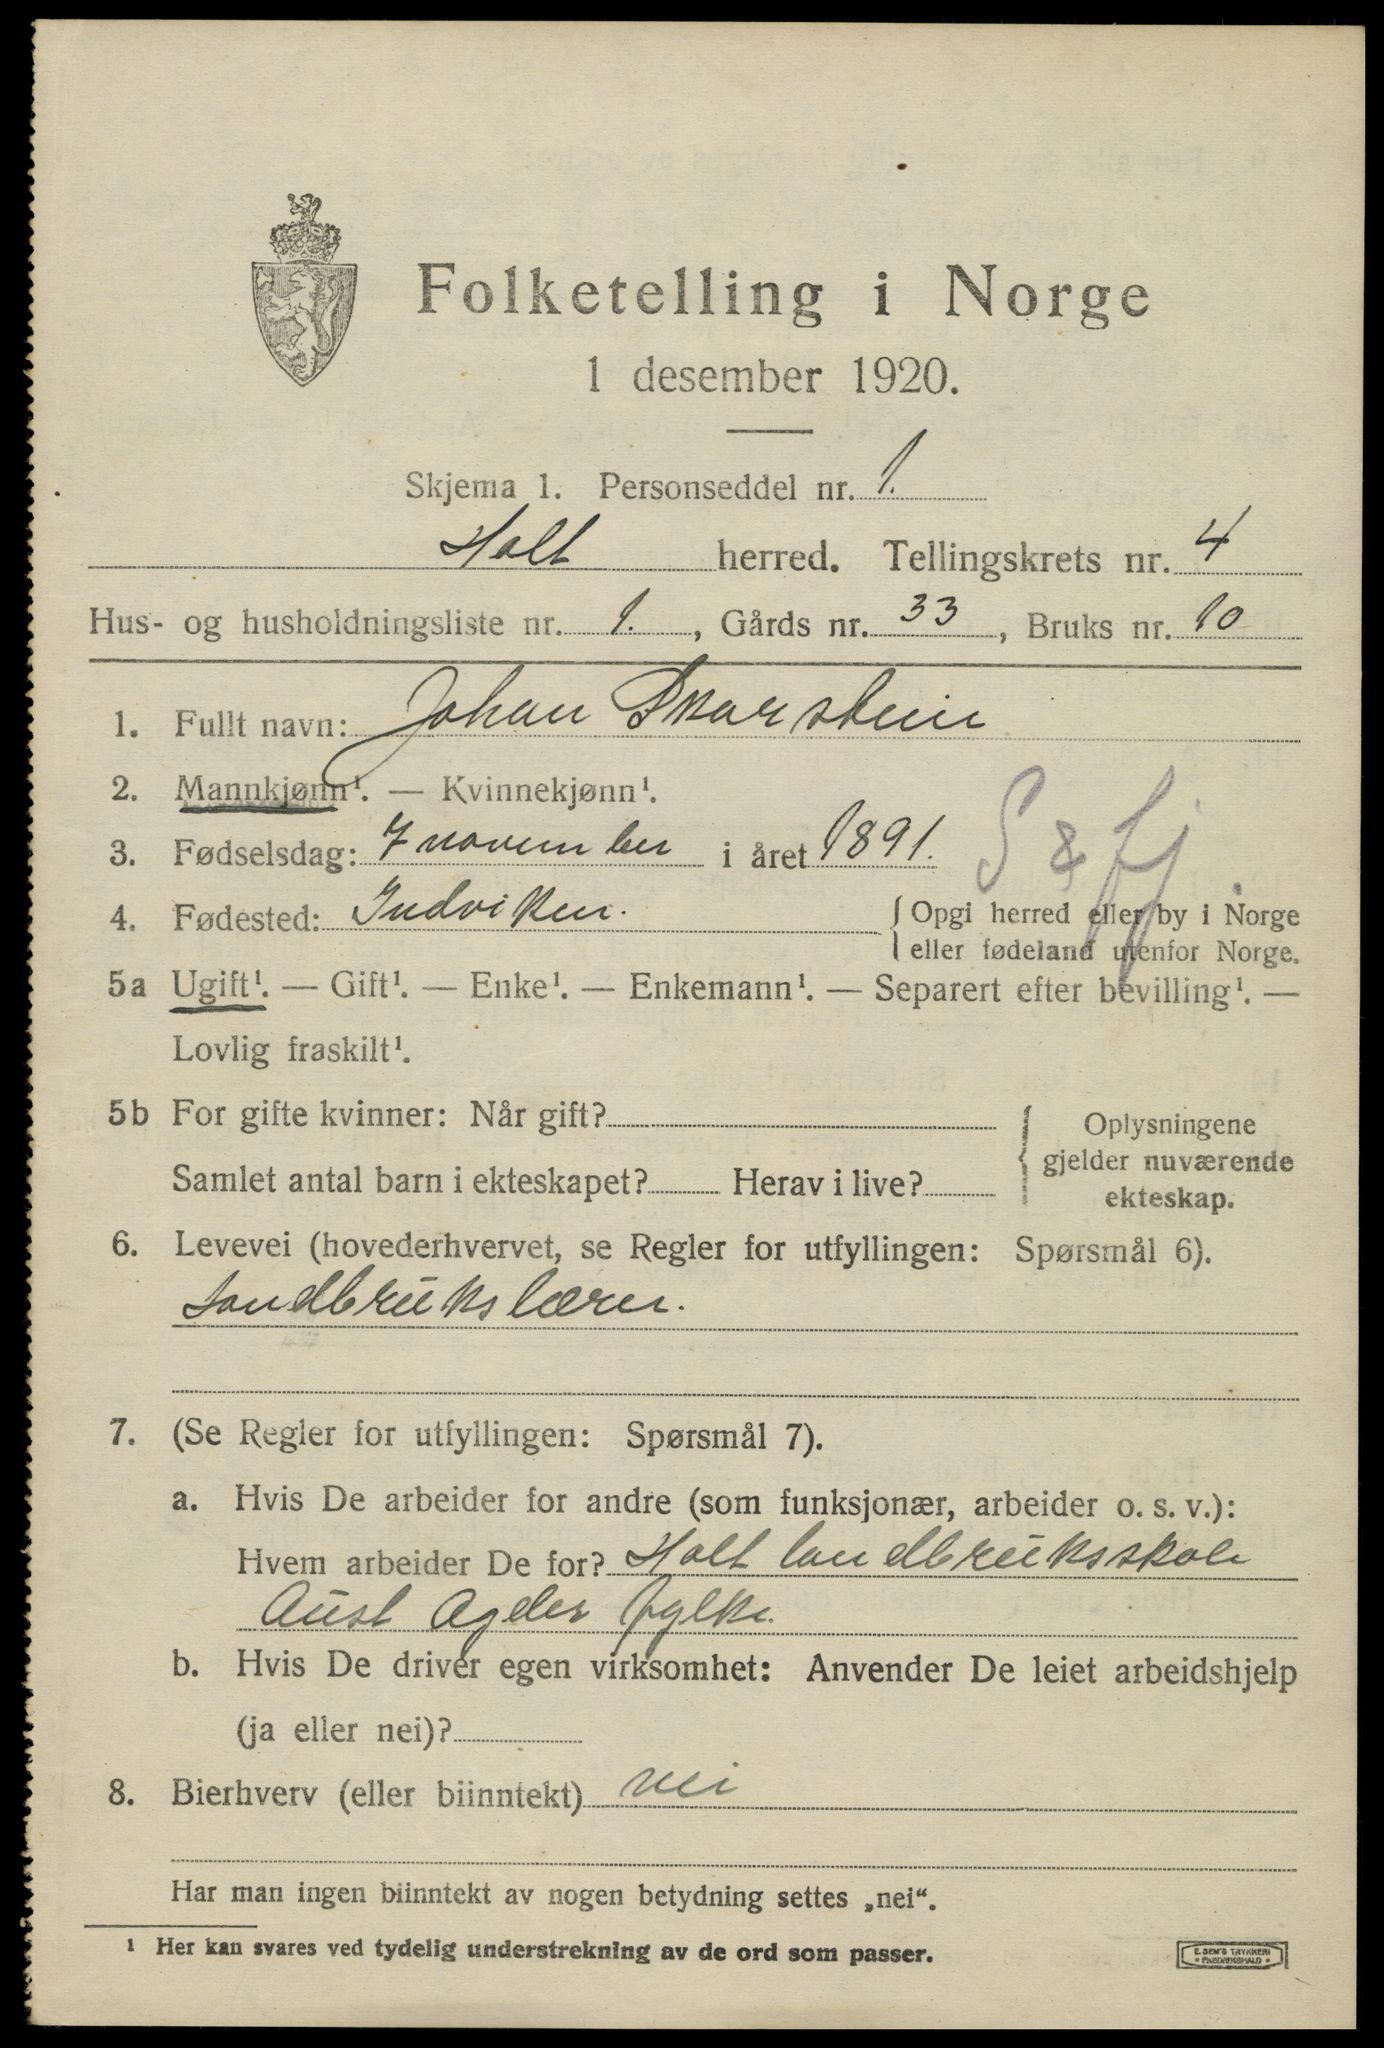 Folketelling i Norge
1 desember 1920.
Skjema 1. Personseddel nr. 1.
Holt herred. Tellingskrets nr. 4
Hus- og husholdningsliste nr. 1. , Gårds nr. 33 , Bruks nr. 10
1. Fullt navn: Johan Skarstein
2. Mannkjønn¹. — Kvinnekjønn¹.
3. Fødselsdag: 7 november i året 1891.
S & Fj
4. Fødested: Indviken. { Opgi herred eller by i Norge
eller fødeland utenfor Norge.
5a Ugift¹. — Gift¹. — Enke¹. — Enkemann¹. — Separert efter bevilling¹. —
Lovlig fraskilt¹.
5b For gifte kvinner: Når gift? { Oplysningene
gjelder nuværende
Samlet antal barn i ekteskapet? Herav i live?
ekteskap.
6. Levevei (hovederhvervet, se Regler for utfyllingen: Spørsmål 6).
Landbrukslærer.
7. (Se Regler for utfyllingen: Spørsmål 7).
a. Hvis De arbeider for andre (som funksjonær, arbeider o. s. v.):
Hvem arbeider De for? Holt landbruksskole
Aust Agder fylke.
b. Hvis De driver egen virksomhet: Anvender De leiet arbeidshjelp
(ja eller nei)?
8. Bierhverv (eller biinntekt) nei
Har man ingen biinntekt av nogen betydning settes „nei“.
¹ Her kan svares ved tydelig understrekning av de ord som passer.
E. SEM'S TRYKKERI
FREDRIKSHALD